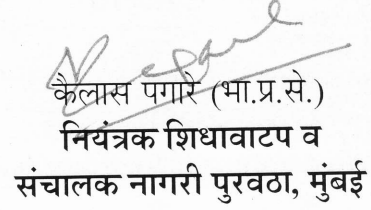 कैलास पगारे (भा.प्र.से.)
नियंत्रक शिधावाटप व
संचालक नागरी पुरवठा, मुंबई